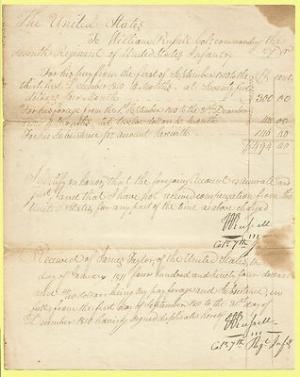 The United States
To William Russell Col. commanding the
seventh Regiment of United States Infantry Dr
For his pay from the first of September 1810 to the
thirty first December 1810 4 months - at seventy five
dollars per month 300 00
For his forage from the 1st September 1810 to the 31st December
months at twelve dollars month 48 00
For his Subsistence for amount herewith 146 40
$494 40
I certify on honor, that the foregoing account is accurate and
just, and that I have not received compensation from the
United States, for any part of the time as above stated
W Russell
Col. 7th
Received of James Taylor, of the United States, this
day of 1811 four hundred and ninety four dollars
and cents being my pay forage and subsistence, in
full from the first day of September 1810 to the 31st day of
December 1810 having signed duplicates hereof
W Russell
Col. 7th Regt Infy